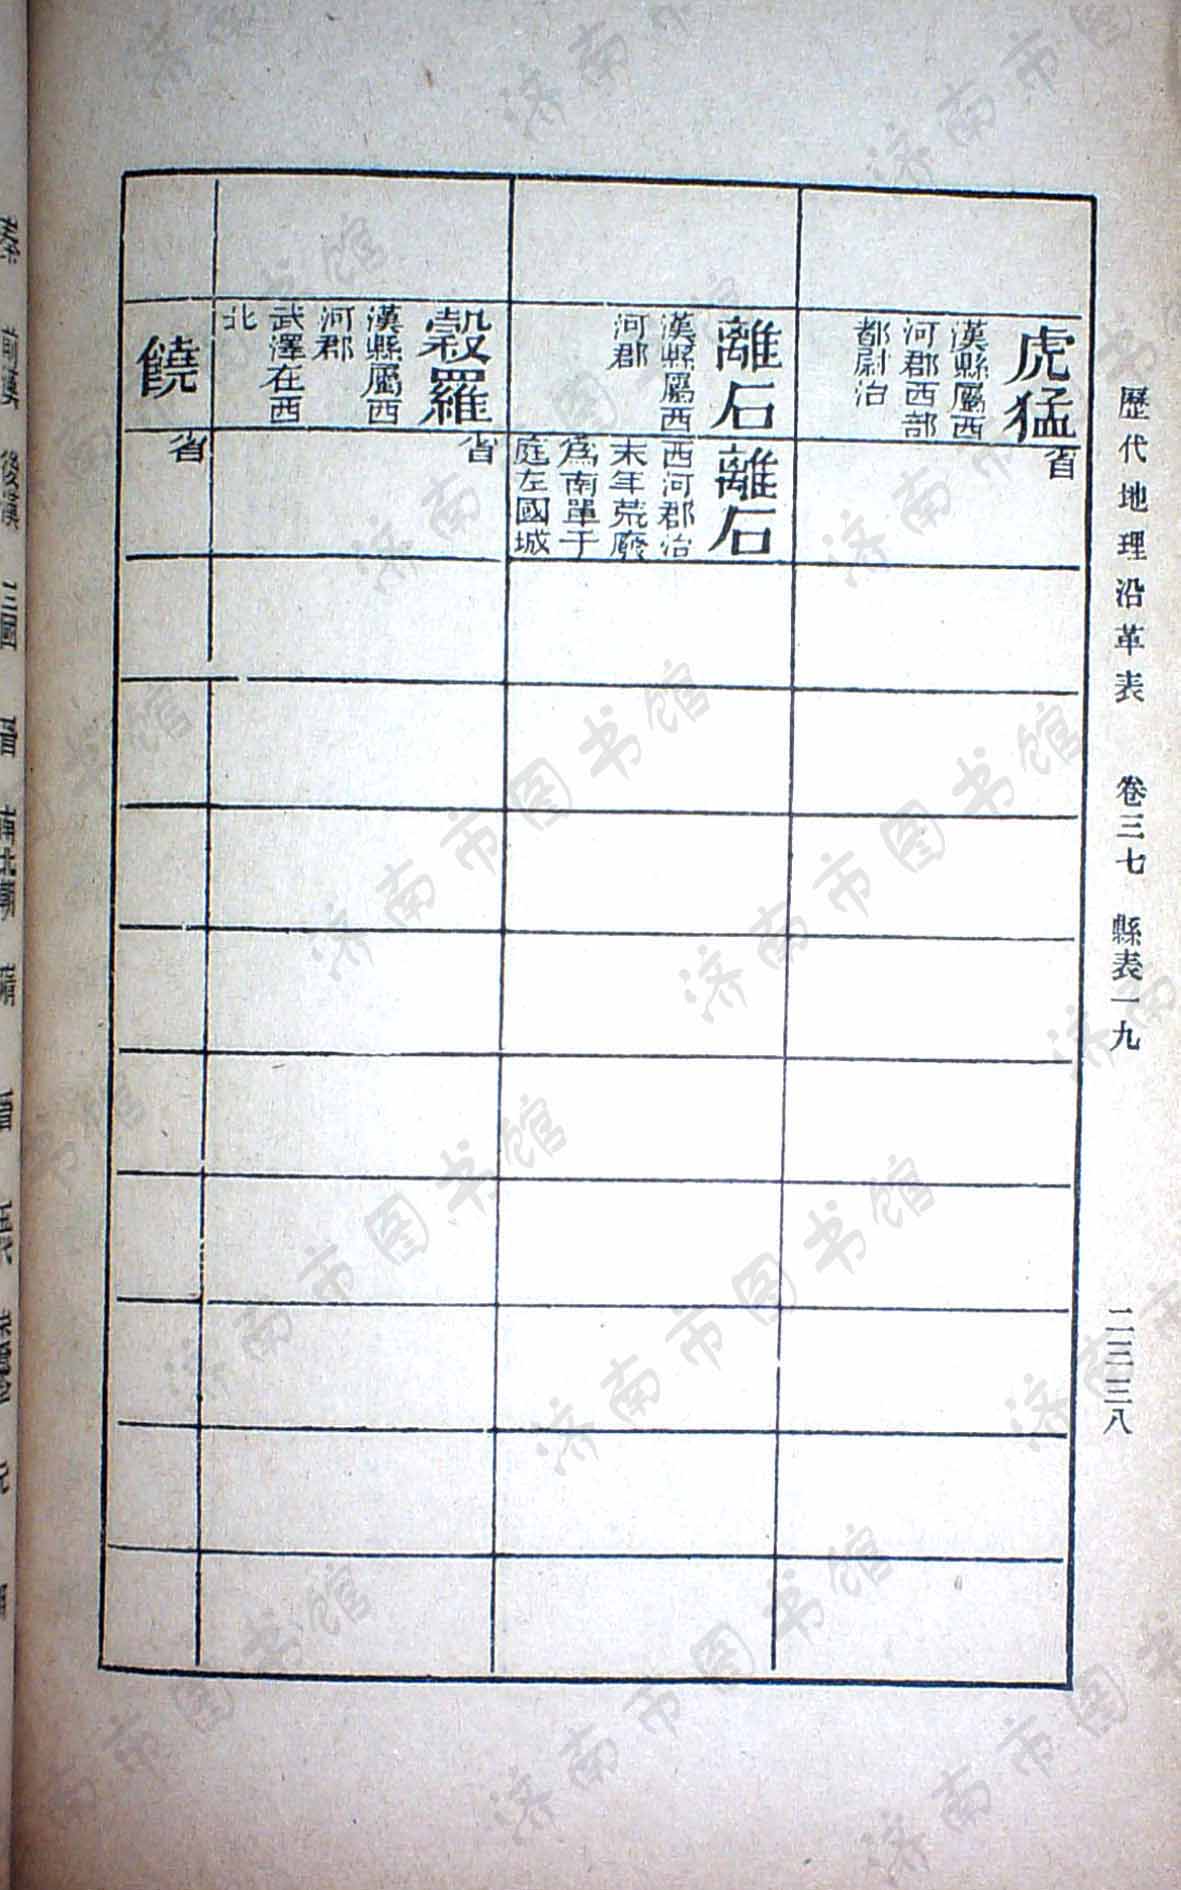 歷代地理沿革表 卷三七 縣表一九 二三三八
虎猛
漢縣屬西
河郡西部
都尉治
省
離石
漢縣屬西
河郡
離石
西河郡治
末年荒廢
爲南單于
庭左國城
穀羅
漢縣屬西
河郡
武澤在西
北
省
饒
省
秦 前漢 後漢 三國 晉 南北朝 隋
济南市图书馆